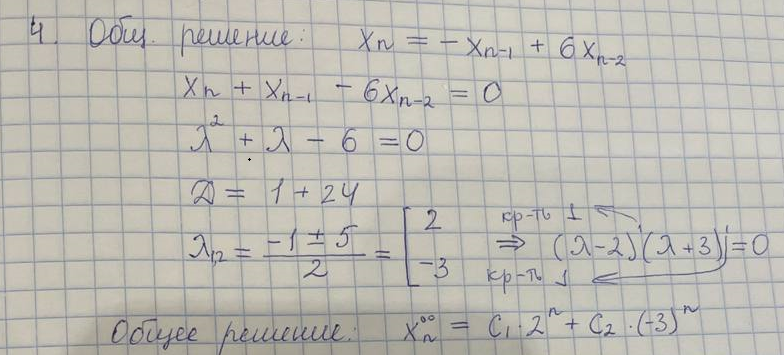 4. Общ. решение: xₙ = -xₙ₋₁ + 6xₙ₋₂
xₙ + xₙ₋₁ - 6xₙ₋₂ = 0
λ² + λ - 6 = 0
D = 1 + 24
λ₁,₂ = (-1 ± 5)/2 = [2 кр-ть 1
-3 кр-ть 1 ⇒ (λ-2)¹(λ+3)¹=0
Общее решение: xₙᵒᵒ = C₁·2ⁿ + C₂·(-3)ⁿ